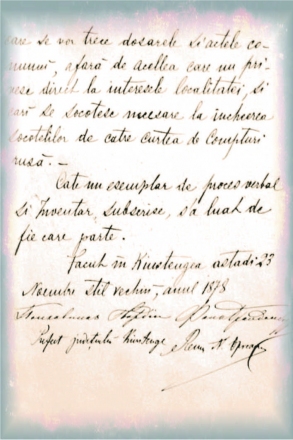 care se vor trece dosarele si actele co-
munei, afară de acellea care nu pri-
vesc direct la interesele localitatei, si
cari se socotesc necesare la incheerea
socotelilor de catre curtea de Compturi
rusă. —
Cate un esemplar de proces verbal
si Inventar, subscrise, s'a luat de
fie care parte.
Facut in Kiustengea astadi 23
Noembre stil vechiu, anul 1878
Prefect judetului Kiustenge Remus N. Opreanu